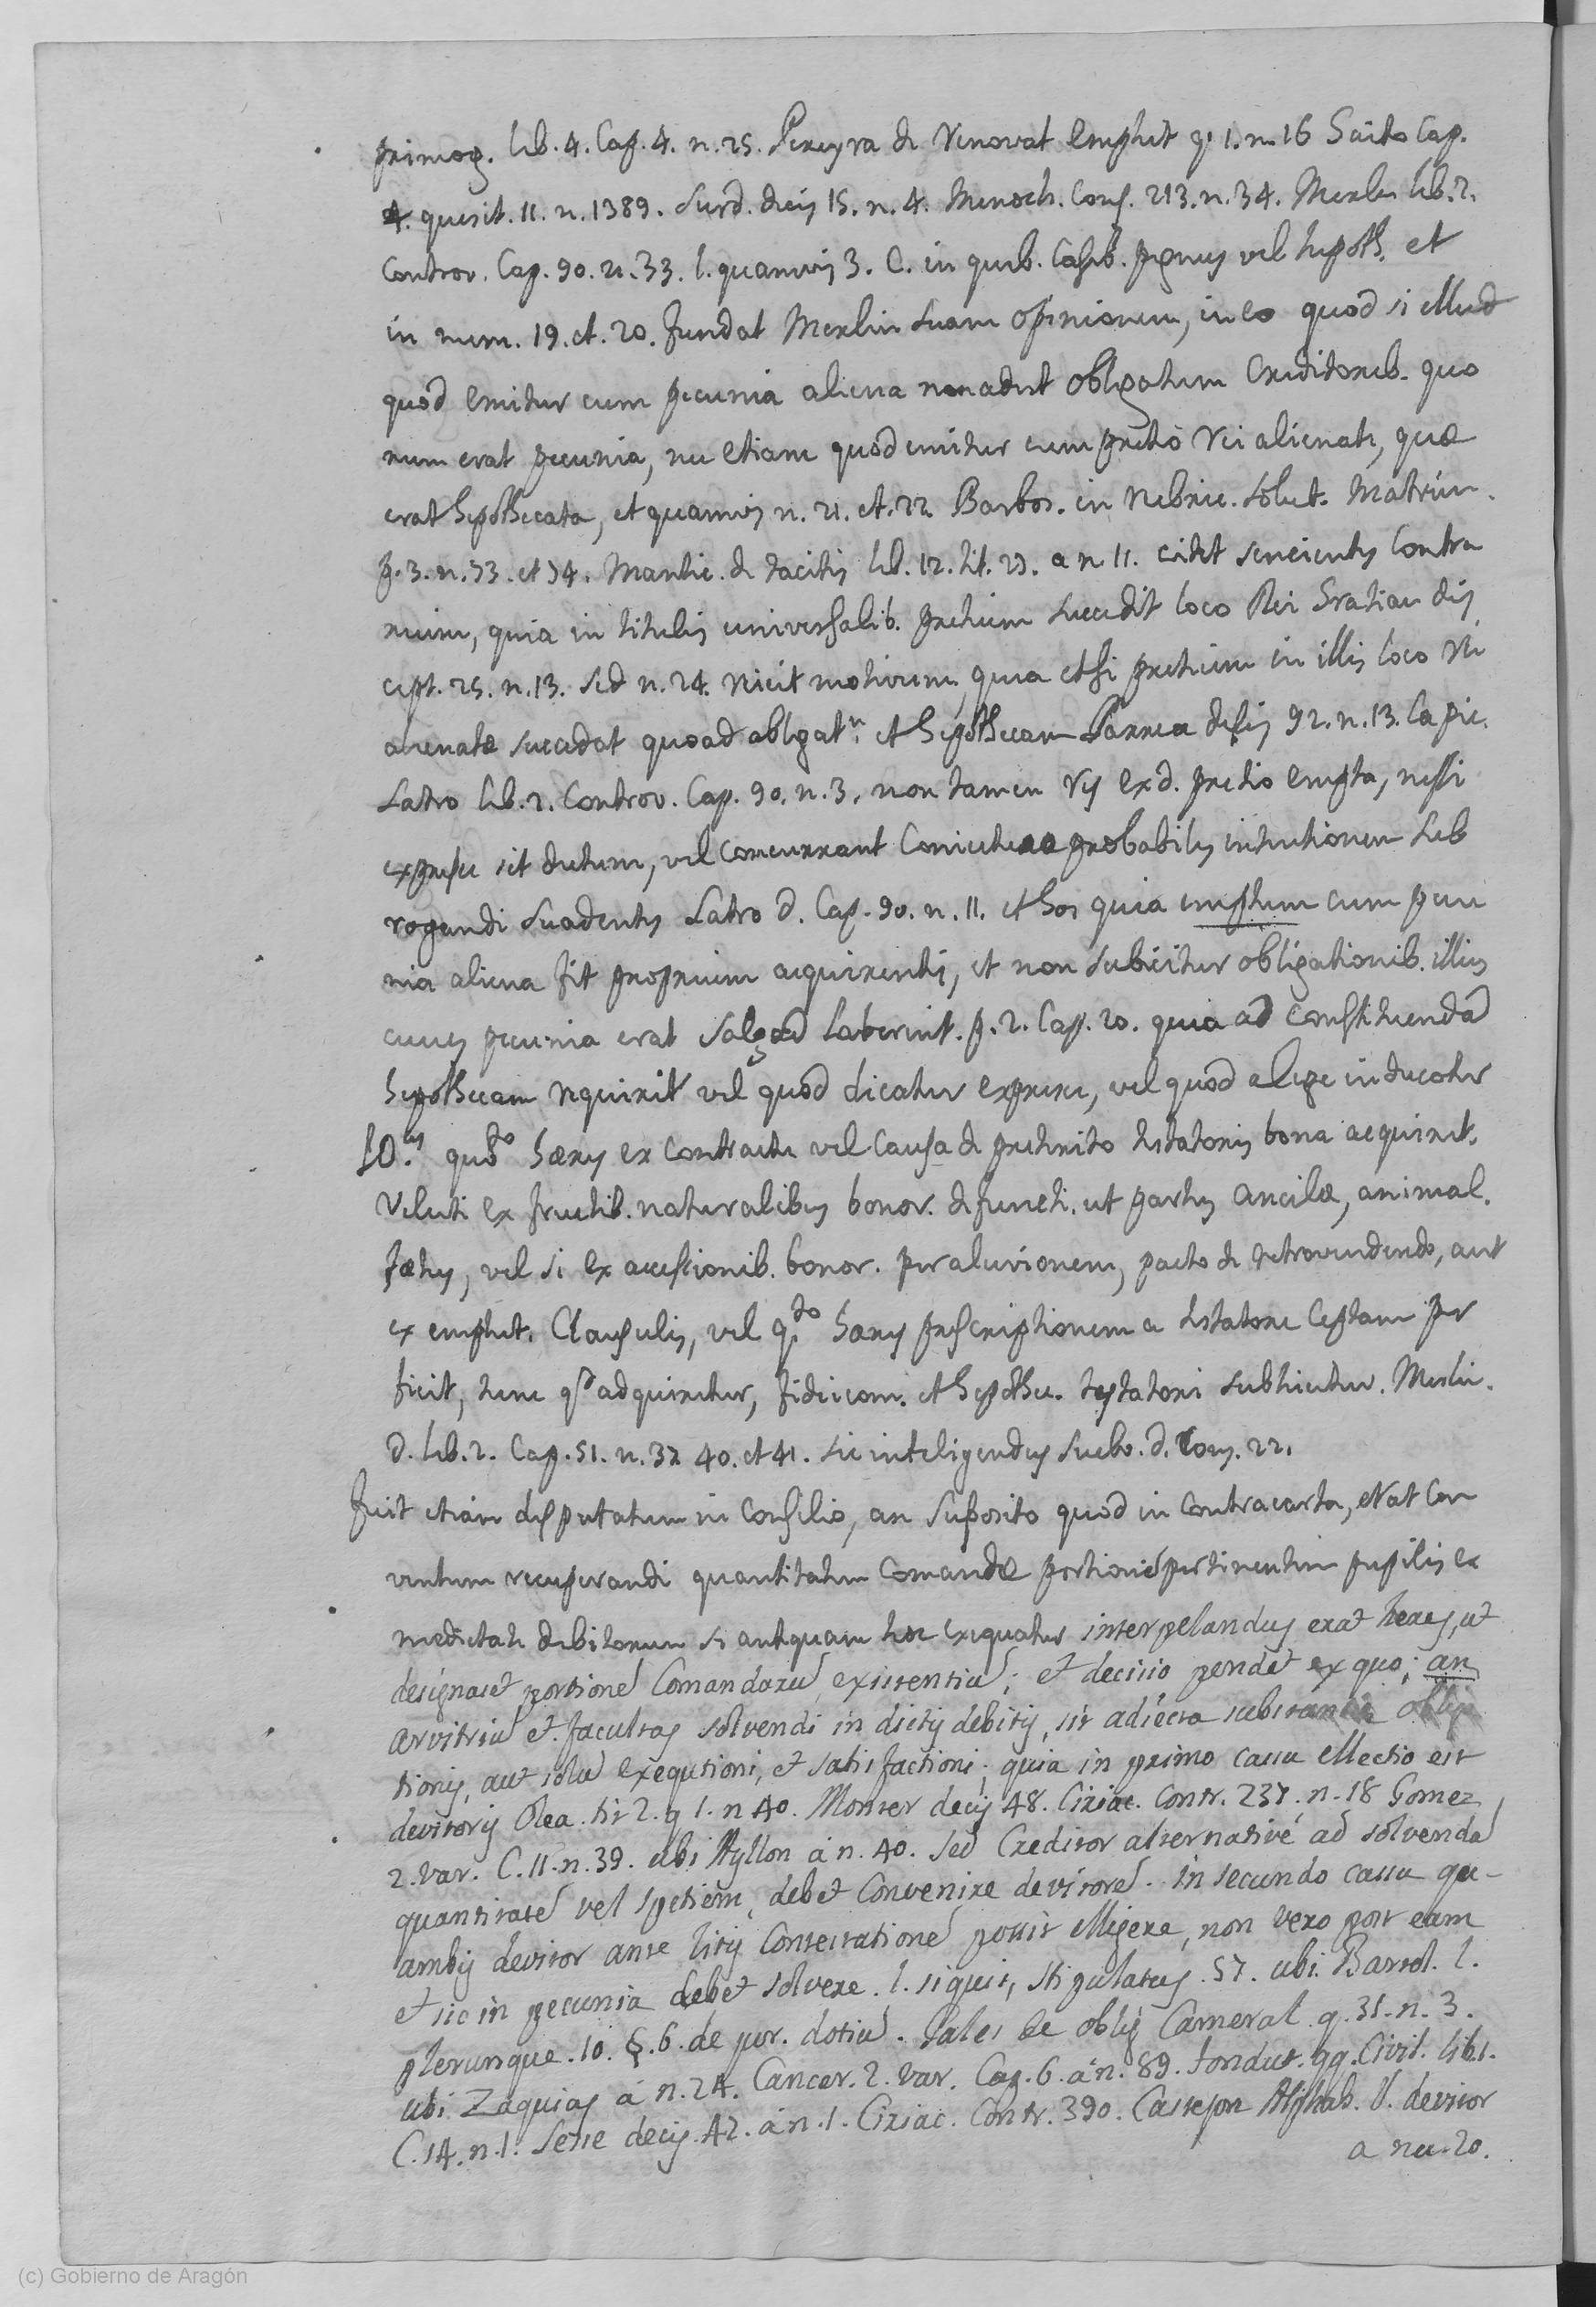 primog. lib. 4. Cap. 4. n. 25. Pereyra de renovat emphit q. 1. n. 16 Guito Cap.
4. quesit. 11. n. 1389. Surd. decis 15. n. 4. Menoch. Cons. 213. n. 34. Merlin lib. 2.
Controv. Cap. 90. n. 33. l. quamvis 3. C. in quib. Casib. pignus vel hipoth. et
in num. 19. et. 20. fundat Merlin suam opinionem, in eo quod si illud
quod emitur cum pecunia aliena non adest obligatum Creditorib. quo
rum erat pecunia, nec etiam quod emitur cum pretio rei alienate, quæ
erat hipothecata, et quamvis n. 21. et. 22. Barbos. in rubric. solut. Matrim.
p. 3. n. 53. et 54. Mantic. de tacitis lib. 12. tit. 23. a n. 11. citet sencientes Contra
rium, quia in titulis universalib. pretium succedit loco Rei Gratian dis
cept. 25. n. 13. sed n. 24. reicit motivum, quia etsi pretium in illis loco rei
alienatæ succedat quoad obligat.n et hipothecam Parrea decis 92. n. 13. Capic.
Latro lib. 2. Controv. Cap. 90. n. 3. non tamen res ex d. pretio empta, nissi
expresse sit dictum, vel concurrant Coniecturæ probabiles intentionem sub
rogandi suadentes Latro d. Cap. 90. n. 11. et hoc quia emptum cum pecu
nia aliena fit proprium acquirentis, et non subicitur obligationib. illius
cuius pecunia erat Salgad Laberint. p. 2. Cap. 20. quia ad constituenda
hipothecam requirit vel quod dicatur exprese, vel quod a lege inducatur
10.us quo.do hæres ex contractu vel causa de preterito testatoris bona acquiret.
Veluti ex fructib. naturalibus bonor. defuncti. ut partus ancilæ, animal.
fætus, vel si ex accessionib. bonor. per aluvionem, pacto de retrovendendo, aut
ex emphit. Clausulis, vel q.do hæres prescriptionem a testatore Ceptam per
ficit, tunc q.d adquiretur, fideicom. et hipothec. testatori subiicitur. Merlin.
d. lib. 2. Cap. 51. n. 37. 40. et 41. sic inteligendus Suelv. d. Cons. 22.
Fuit etiam disputatum in Consilio, an suposito quod in Contracarta, erat Con
ventum recuperandi quantitatem Comandæ portione pertinentem pupilis ex
medietate debitorum si antequam hoc exequatur interpelandus erat heres, ut
designaret portione Comandaru existentiu; et decisio pendet ex quo; an
arvitriu et facultas solvendi in dictis debitis, sit adiecta substantie obliga
tionis, aut solu exequtioni, et satisfactioni; quia in primo cassu ellectio est
devitoris Olea. tit 2. q 1. n 40. Monter decis 48. Ciriac. Contr. 237. n. 18 Gomez
2. var. C. 11. n. 39. ubi Ayllon á n. 40. sed Creditor alternativé ad solvenda
quantitate vel spetiem, debet Convenire devitore. in secundo cassu qu-
ambis devitor ante litis Contestatione possit elligere, non vero post eam
et sic in pecunia debet solvere. l. si quis, stipulatus. 57. ubi Bartol. l.
plerunque. 10. §. 6. de yur. dotiu. Sales de oblig Cameral q. 31. n. 3.
ubi Zaquias á n. 24. Cancer. 2. var. Cap. 6. á n. 89. tondut. qq. Civil. lib. 1.
C. 14. n. 1. Sesse decis. 42. á n. 1. Ciriac. Contr. 390. Castejon Alphab. V. devitor
a nu. 20.
(c) Gobierno de Aragón